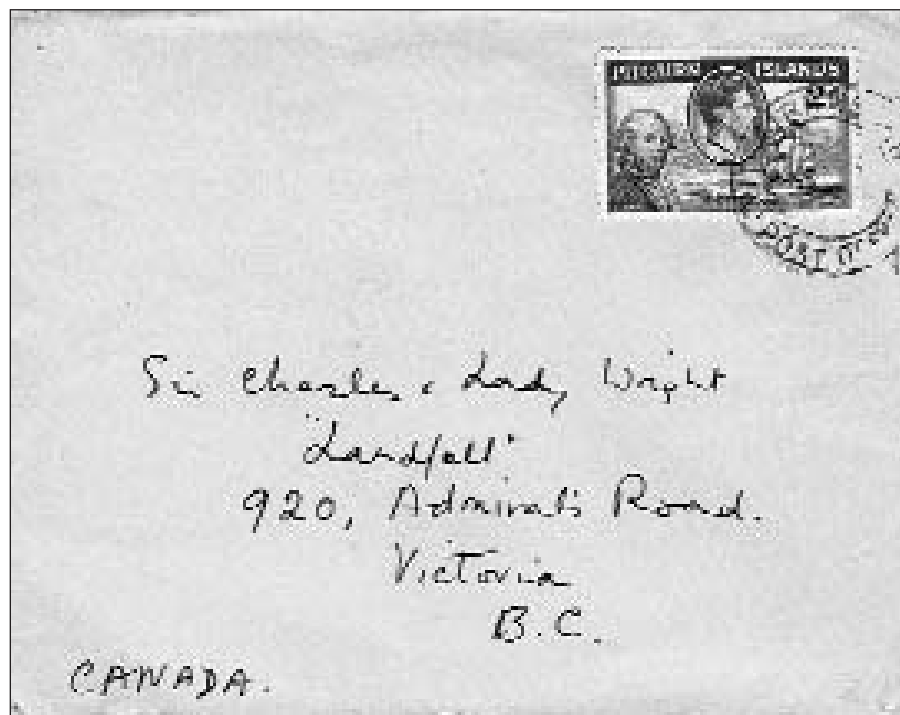 PITCAIRN ISLANDS
POST OFFICE
Sir Charles & Lady Wright
"Landfall"
920, Admirals Road.
Victoria
B.C.
CANADA.